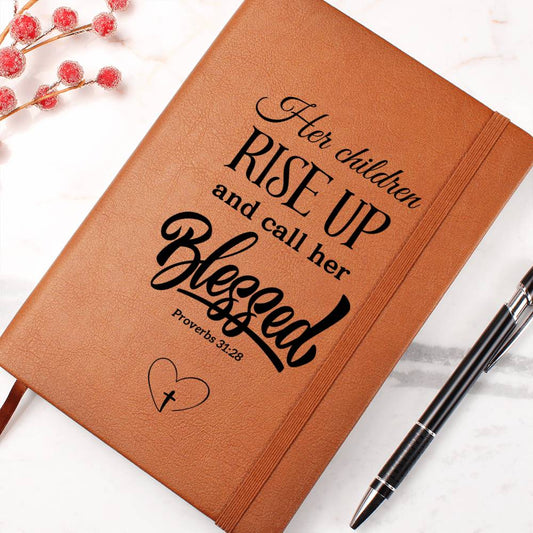 Her children
RISE UP
and call her
Blessed
Proverbs 31:28